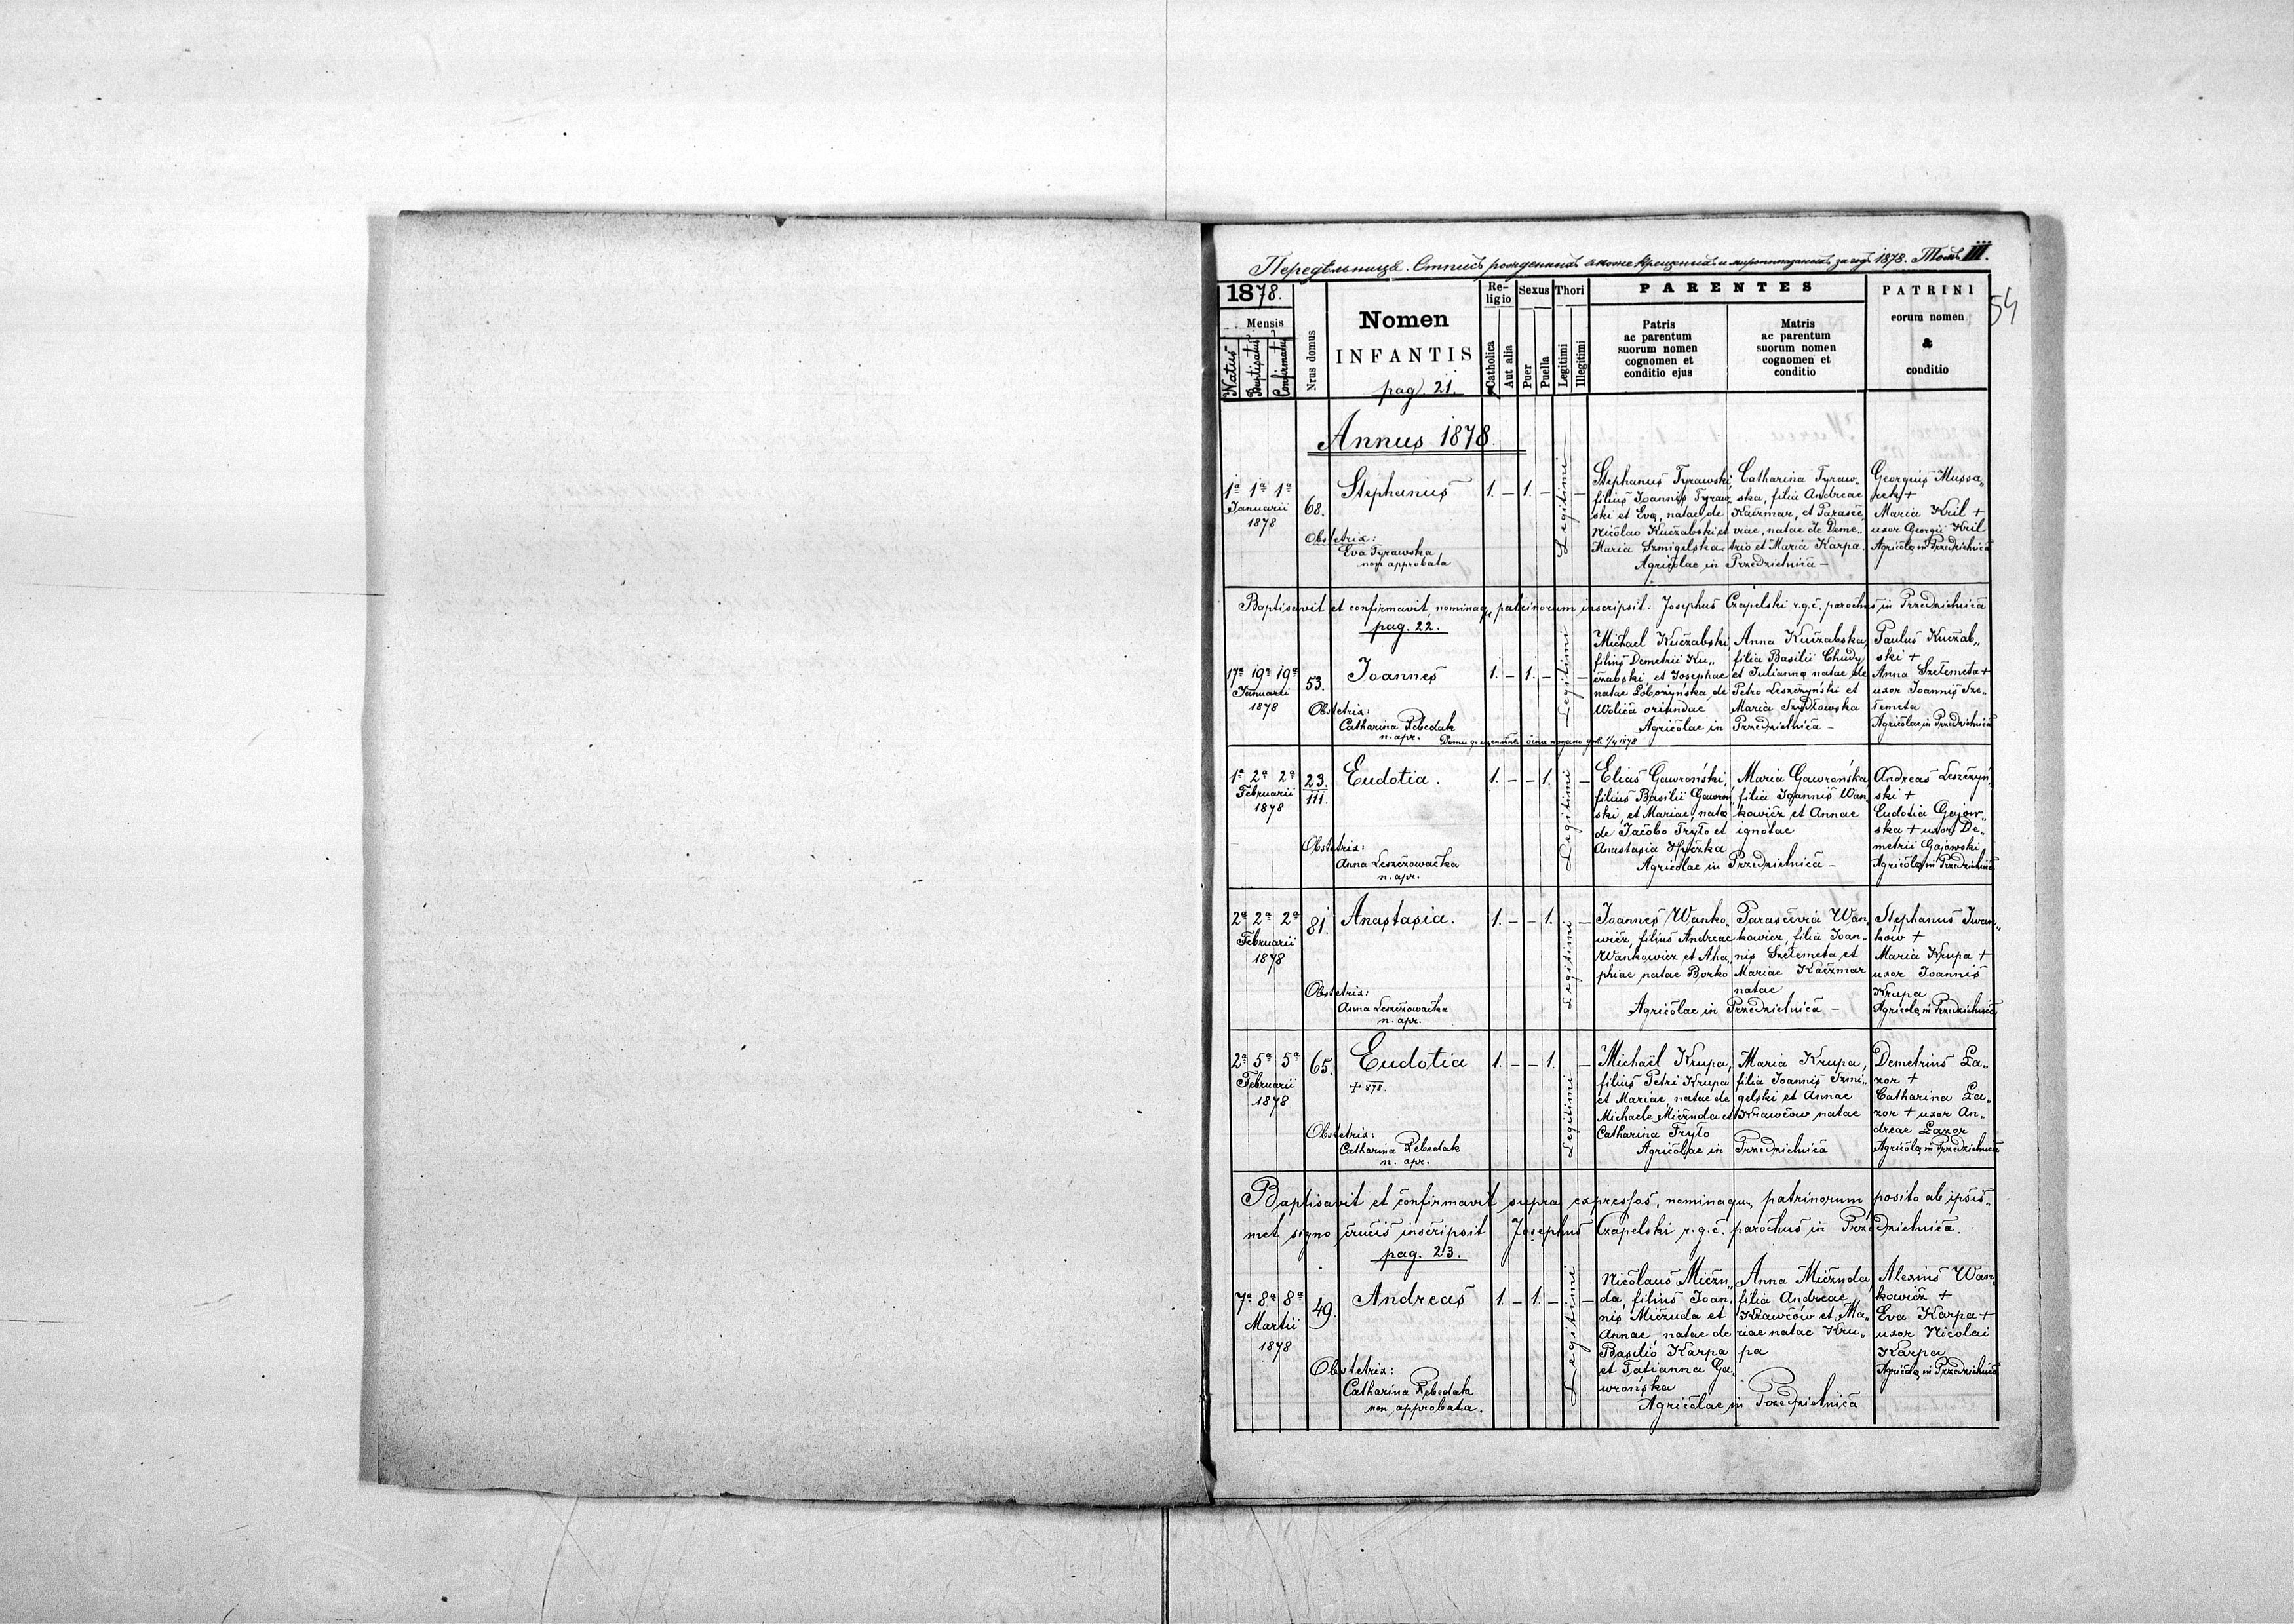 Передѣльница. Списъ рожденныхъ крещенныхъ и миропомазанныхъ за годъ 1878. Томъ III.
54
1878.
Mensis
Natus
Baptisatus
Confirmatus
Nrus domus
Nomen
INFANTIS
pag. 21.
Religio
Catholica
Aut alia
Sexus
Puer
Puella
Thori
Legitimi
Illegitimi
PARENTES
Patris
ac parentum
suorum nomen
cognomen et
conditio ejus
Matris
ac parentum
suorum nomen
cognomen et
conditio
PATRINI
eorum nomen
&
conditio
Annus 1878
1a 1a 1a
Januarii
1878
68.
Stephanus
Obstetrix:
Eva Tyrawska
non approbata
1. – 1. – –
Legitimi
Stephanus Tyrawski,
filius Joannis Tyraw-
ski et Eva, natae de
Nicolao Kuczabski et
Maria Szmigelska
Catharina Tyraw-
ska, filia Andreae
Kaczmar, et Parasce-
viae, natae de Deme-
trio et Maria Karpa.
Agricolae in Przedzielnica –
Georgius Mussa-
rek +
Maria Kril +
uxor Georgii Kril
Agricolae in Przedzielnica
Baptisavit et confirmavit, nominaqu patrinorum inscripsit: Josephus Czapelski r.g.c. parochus in Przedzielnica
pag. 22.
17a 19a 19a
Januarii
1878
53.
Joannes
Obstetrix:
Catharina Rebedak
n. apr.
1. – 1. – –
Legitimi
Michael Kuczabski,
filius Demetrii Ku-
czabski, et Josephae
natae Łobozyńska de
Wolica oriundae
Anna Kuczabska,
filia Basilii Chudy
et Julianna natae de
Petro Leszczyński et
Maria Szydłowska
Agricolae in Przedzielnica –
Paulus Kuczab-
ski +
Anna Szełemeta +
uxor Joannis Sze-
łemeta
Agricolae in Przedzielnica
1a 2a 2a
Februarii
1878
23.
III.
Eudotia.
Obstetrix:
Anna Leszczowaczka
n. apr.
1. – – 1. –
Legitimi
Elias Gawroński,
filius Basilii Gawroń-
ski, et Mariae, nata
de Jacobo Tryło et
Anastasia
Maria Gawrońska
filia Joannis Wan-
kowicz et Annae
ignotae
Agricolae in Przedzielnica –
Andreas Leszczyń-
ski +
Eudotia Gajow-
ska + uxor De-
metrii Gajowski
Agricolae in Przedzielnica
2a 2a 2a
Februarii
1878
81.
Anastasia.
Obstetrix:
Anna Leszczowaczka
n. apr.
1. – – 1. –
Legitimi
Joannes Wanko-
wicz, filius Andreae
Wankowicz et Aha-
phiae natae Borko
Parascevia Wan-
kowicz, filia Joan-
nis Szełemeta et
Mariae Kaczmar
natae
Agricolae in Przedzielnica –
Stephanus Iwan-
ków +
Maria Krupa +
uxor Joannis
Krupa
Agricolae in Przedzielnica
2a 5a 5a
Februarii
1878
65.
Eudotia
+ 878.
Obstetrix:
Catharina Rebedak
n. apr.
1. – – 1. –
Legitimi
Michaël Krupa,
filius Petri Krupa
et Mariae, natae de
Michaele Miczuda et
Catharina Tryło
Maria Krupa,
filia Joannis Szmi-
gelski et Annae
Krawców natae
Agricolae in Przedzielnica
Demetrius Ła-
zor +
Catharina Ła-
zor + uxor An-
dreae Łazor
Agricolae in Przedzielnica
Baptisavit et confirmavit supra expressos, nominaqu patrinorum posito ab ipsis-
met signo crucis inscripsit Josephus Czapelski r.g.c. parochus in Przedzielnica.
pag. 23.
7a 8a 8a
Martii
1878
49.
Andreas
Obstetrix:
Catharina Rebedak
non approbata.
1. – 1. – –
Legitimi
Nicolaus Miczu-
da, filius Joan-
nis Miczuda et
Annae, natae de
Basilio Karpa
et Tatianna Ga-
wrońska
Anna Miczuda,
filia Andreae
Krawców et Ma-
riae natae Kru-
pa
Agricolae in Przedzielnica
Alexius Wan-
kowicz +
Eva Karpa +
uxor Nicolai
Karpa
Agricolae in Przedzielnica